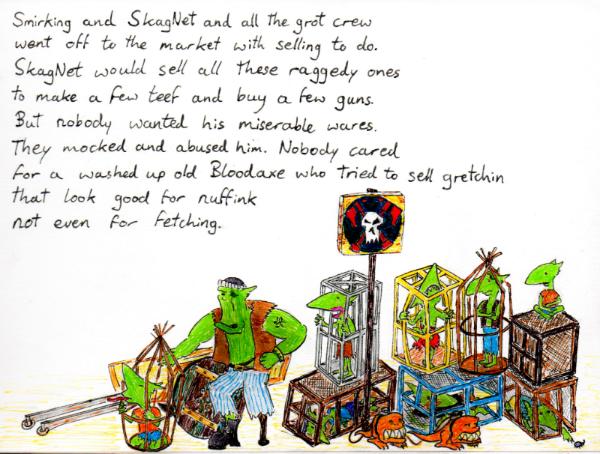 Smirking and SkagNet and all the grot crew
went off to the market with selling to do.
SkagNet would sell all these raggedy ones
to make a few teef and buy a few guns.
But nobody wanted his miserable wares.
They mocked and abused him. Nobody cared
for a washed up old Bloodaxe who tried to sell gretchin
that look good for nuffink
not even for fetching.